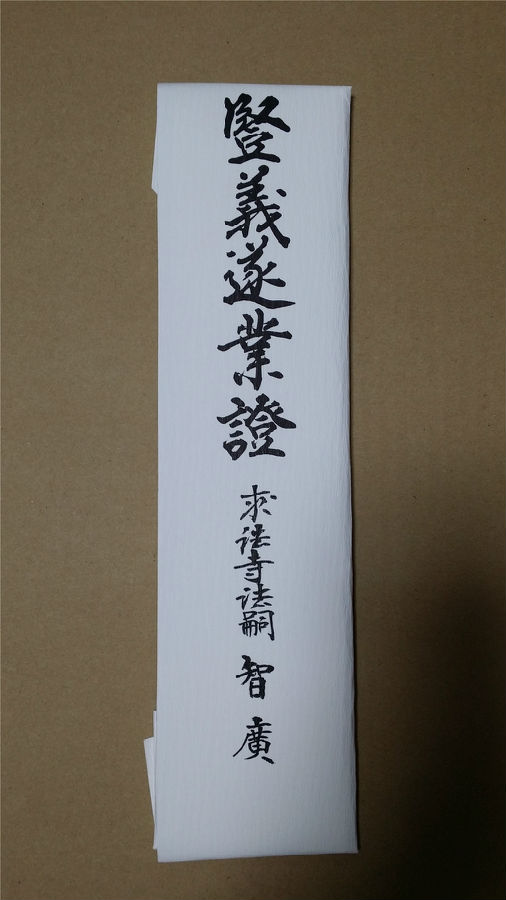 竪義遂業證 求法寺法嗣 智廣